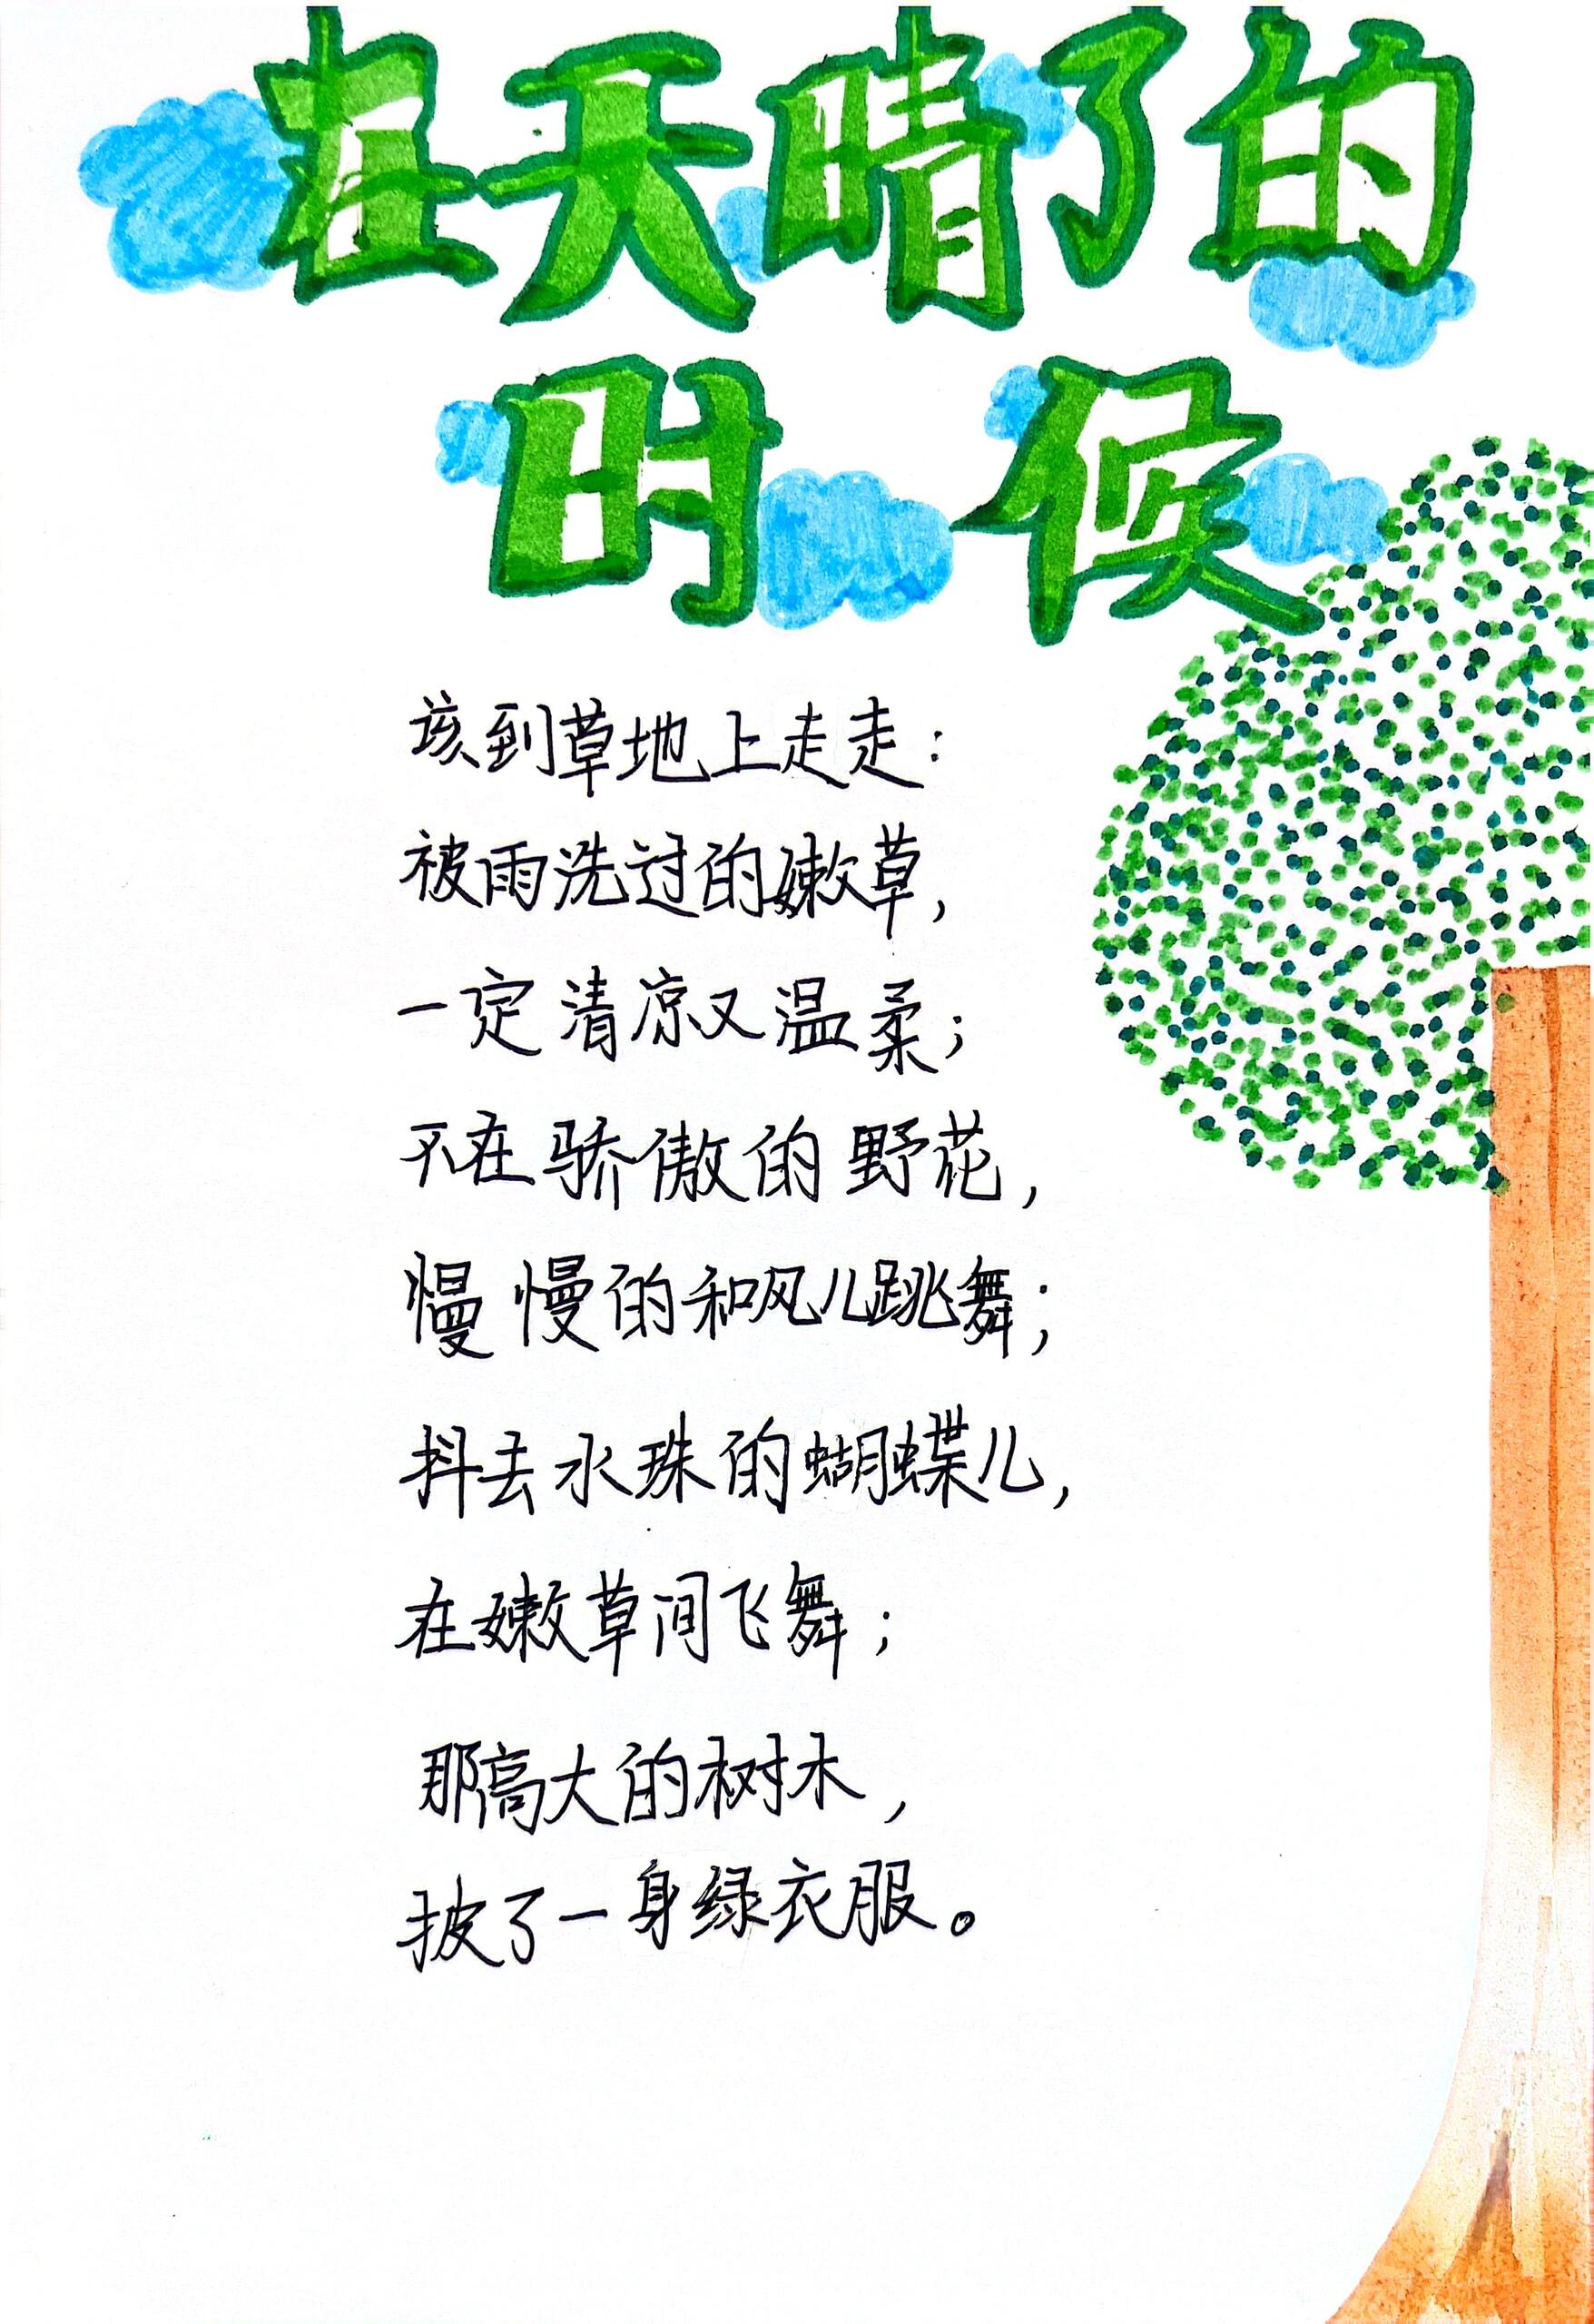 在天晴了的
时候
该到草地上走走：
被雨洗过的嫩草，
一定清凉又温柔；
不在骄傲的野花，
慢慢的和风儿跳舞；
抖去水珠的蝴蝶儿，
在嫩草间飞舞；
那高大的树木，
披了一身绿衣服。